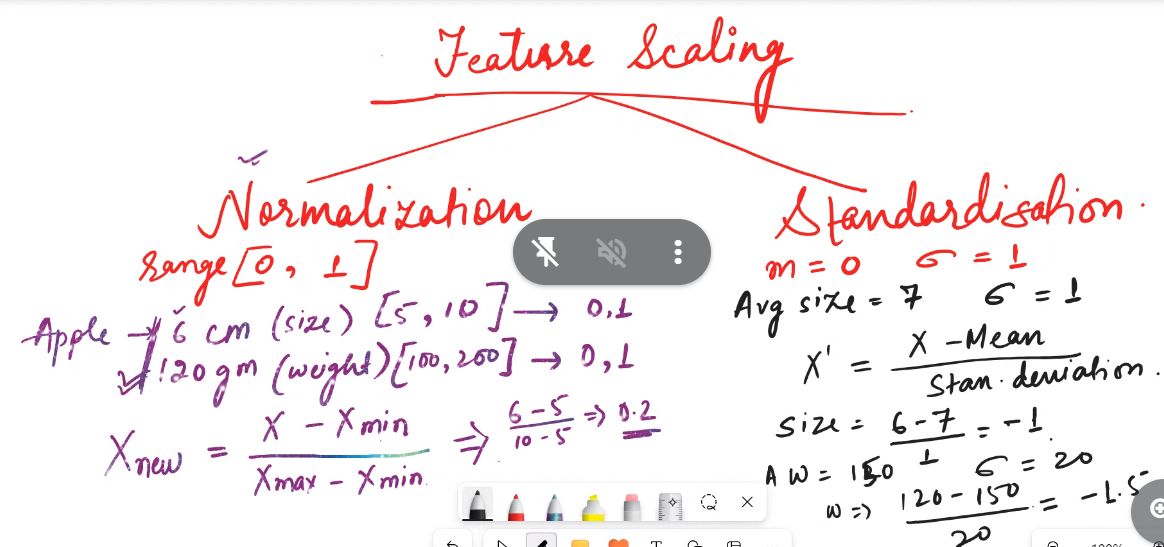 Feature Scaling
Normalization
range [0, 1]
Apple → 6 cm (size) [5, 10] → 0,1
120 gm (weight) [100, 200] → 0,1
Xnew = X - Xmin / Xmax - Xmin ⇒ 6-5 / 10-5 ⇒ 0.2
Standardisation.
m = 0 σ = 1
Avg size = 7 σ = 1
X' = X - Mean / Stan. deviation.
size = 6-7 / 1 = -1
A W = 150 σ = 20
W ⇒ 120-150 / 20 = -1.5